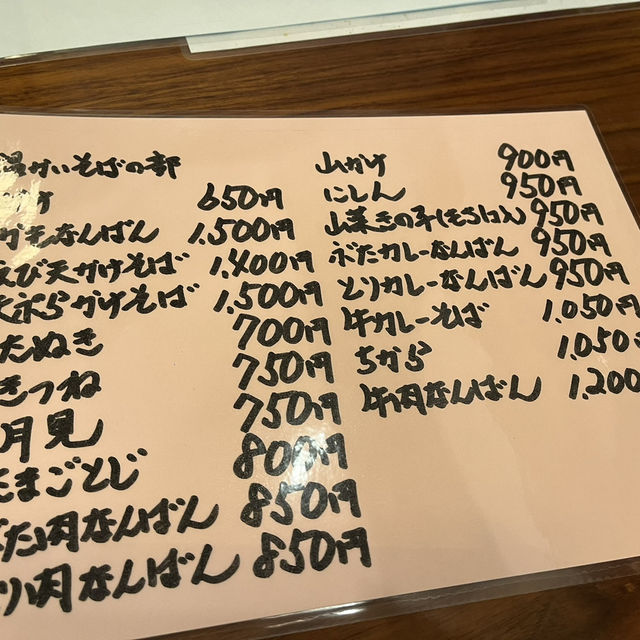 温かいそばの部
かけ 650円
かもなんばん 1,500円
えび天かけそば 1,400円
天ぷらかけそば 1,500円
たぬき 700円
きつね 750円
月見 750円
たまごとじ 800円
ぶた肉なんばん 850円
とり肉なんばん 850円
山かけ 900円
にしん 950円
山菜きの子(もちいり) 950円
ぶたカレーなんばん 950円
とりカレーなんばん 950円
牛カレーそば 1,050円
ちから 1,050
牛肉なんばん 1,200